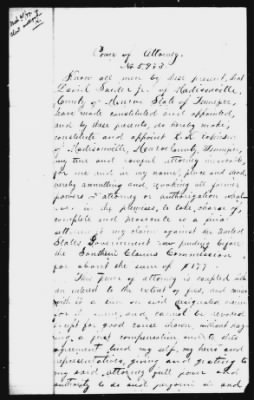 Power of Attorney.
No. 5,983
Know all men by these present, that
David Snider Jr. of Madisonville,
County of Monroe State of Tennessee,
have made constituted and appointed,
and by these presents, do hereby make,
constitute and appoint
of Madisonville, Monroe County, Tennessee,
my true and lawful attorney irrevocable,
for me and in my name, place and stead,
hereby annulling and revoking all former
powers of attorney or authorization what
ever in the premises, to take charge of,
complete and prosecute to a final
my claim against the United
States Government now pending before
the Southern Claims Commission
for about the sum of $177.
This power of attorney is coupled with
an interest to the extent of fees, and
with it a lien on said designated claim
for it same, and cannot be revoked
except for good cause shown, without
a just compensation and to this
agreement bind my self, my heirs and
representatives, giving and granting to
my said attorney full power and
authority to do and perform in and